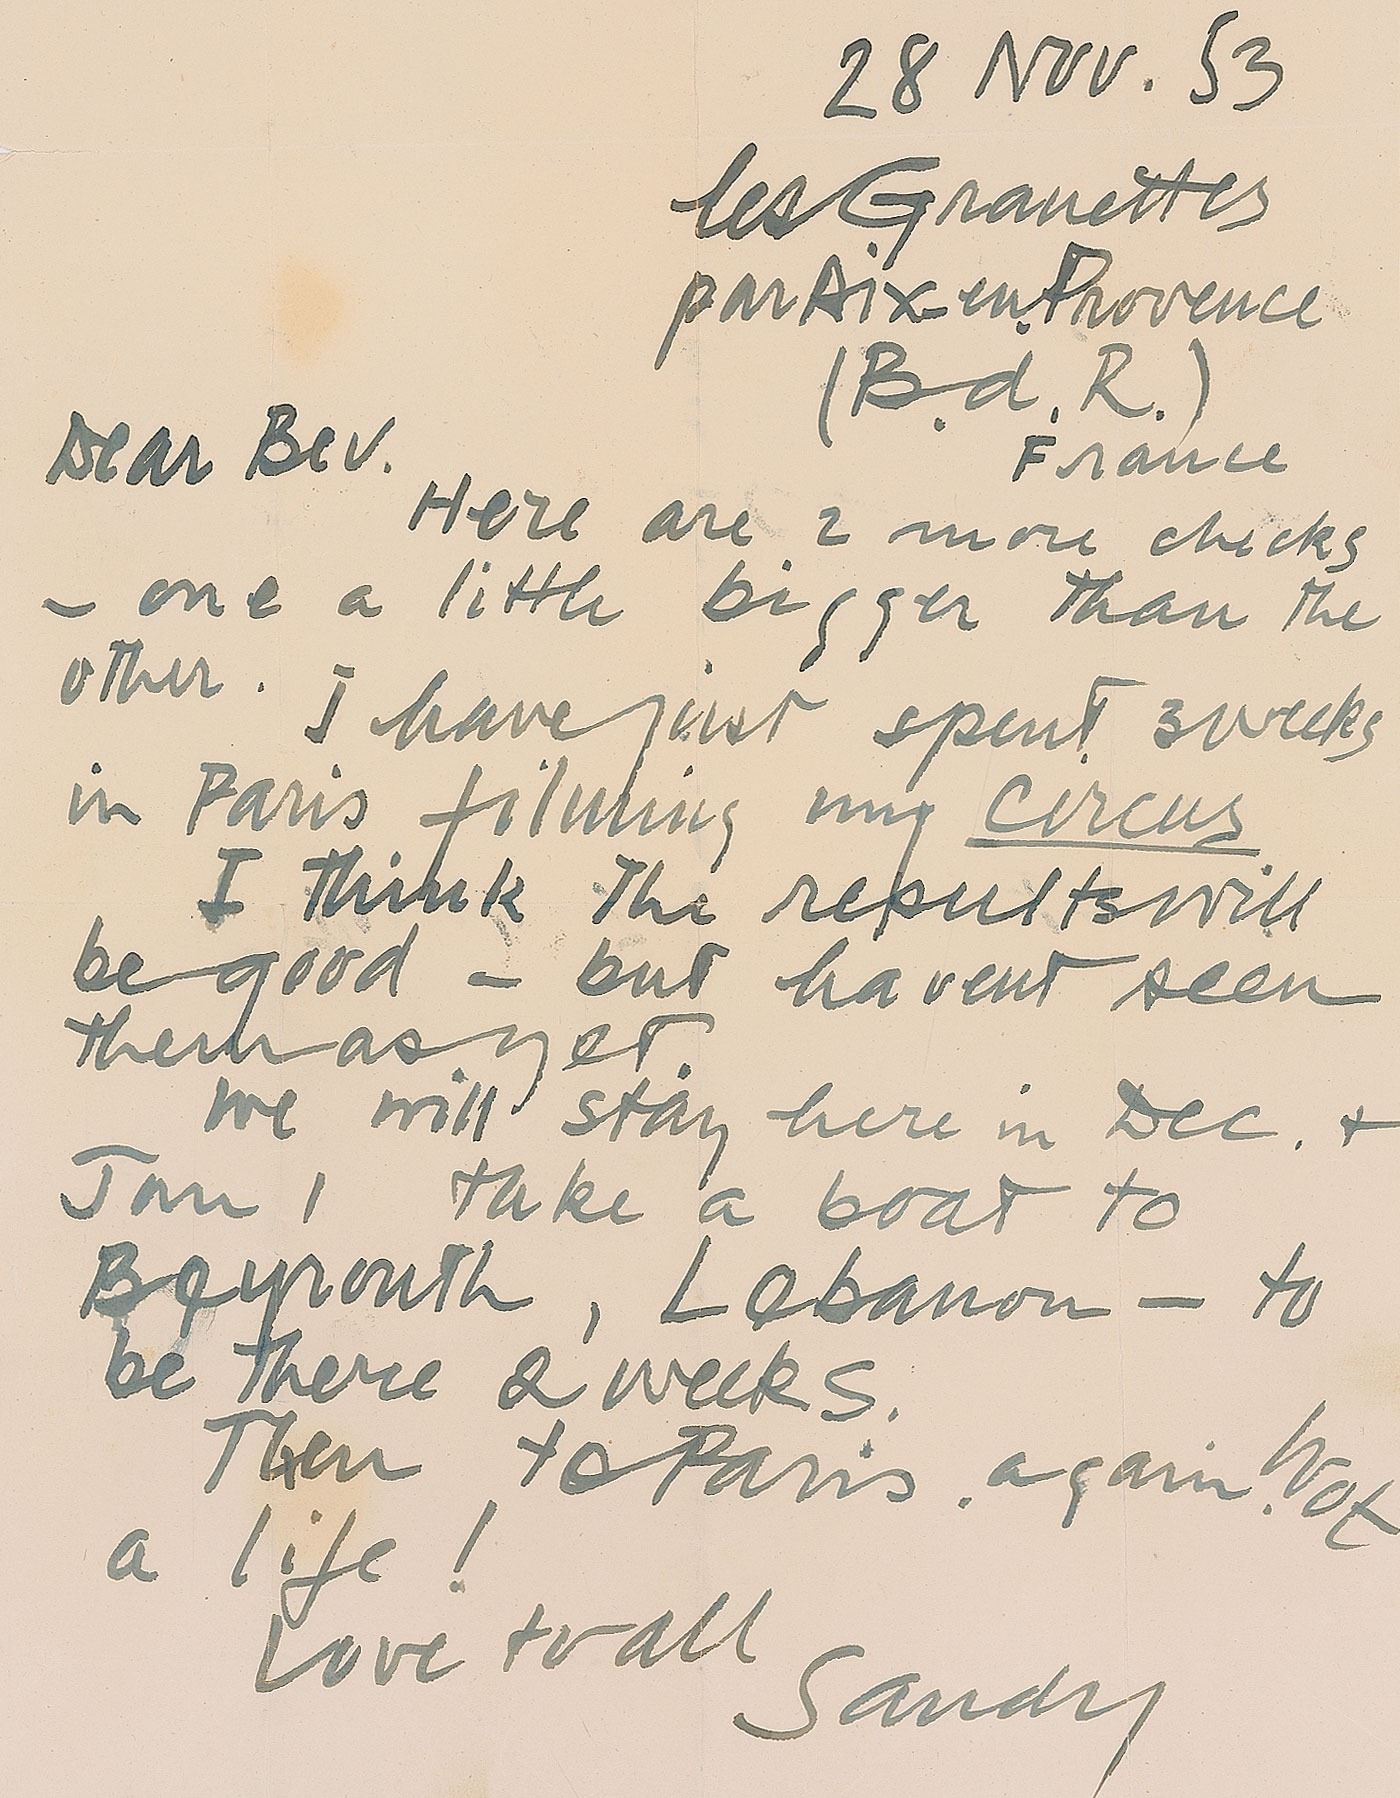 28 Nov. 53
les Granettes
par Aix-en-Provence
(B.d.R.)
France
Dear Bev.
Here are 2 more checks
– one a little bigger than the
other.
I have just spent 3 weeks
in Paris filming my circus
I think the results will
be good – but havent seen
them as yet.
We will stay here in Dec. +
Jan 1 take a boat to
Beyrouth, Lebanon – to
be there 2 weeks.
Then to Paris. again. Wot
a life!
Love to all
Sandy